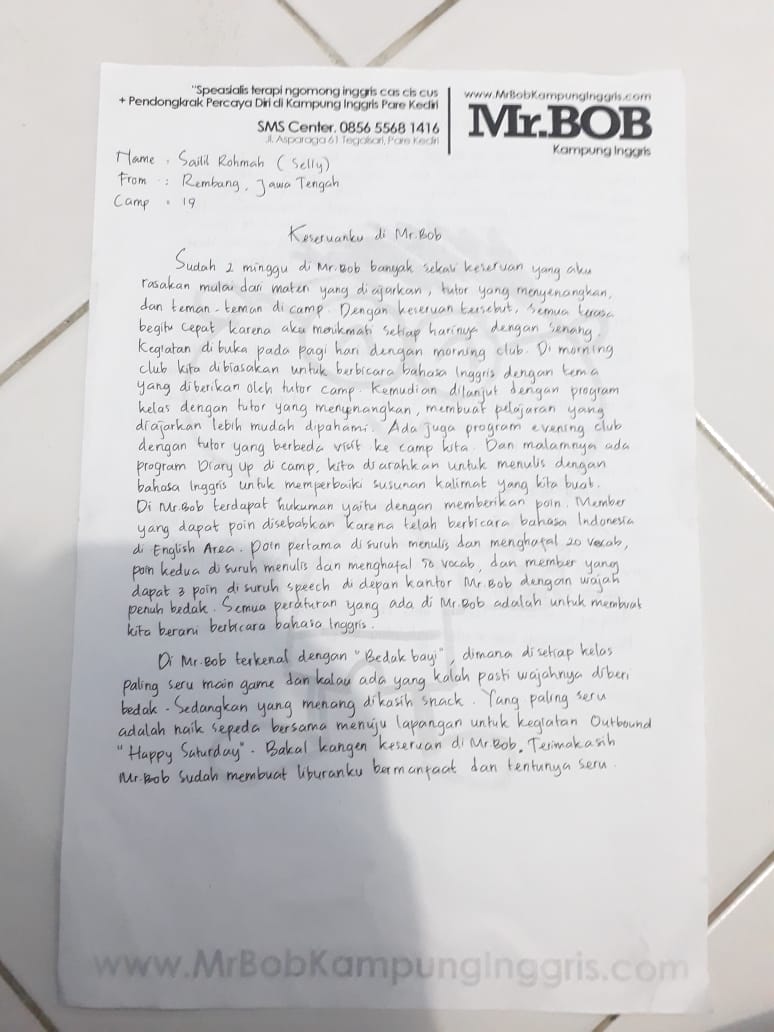 "Speasialis terapi ngomong inggris cas cis cus
+ Pendongkrak Percaya Diri di Kampung Inggris Pare Kediri
SMS Center. 0856 5568 1416
Jl. Asparaga 61 Tegalsari, Pare Kediri
www.MrBobKampungInggris.com
Mr.BOB
Kampung Inggris
Name : Sailil Rohmah (Selly)
From : Rembang, Jawa Tengah
Camp : 19
Keseruanku di Mr.Bob
Sudah 2 minggu di Mr.Bob banyak sekali keseruan yang aku
rasakan mulai dari materi yang diajarkan, tutor yang menyenangkan,
dan teman-teman di camp. Dengan keseruan tersebut, semua terasa
begitu cepat karena aku menikmati setiap harinya dengan senang.
Kegiatan dibuka pada pagi hari dengan morning club. Di morning
club kita dibiasakan untuk berbicara bahasa Inggris dengan tema
yang diberikan oleh tutor camp. Kemudian dilanjut dengan program
kelas dengan tutor yang menyenangkan, membuat pelajaran yang
diajarkan lebih mudah dipahami. Ada juga program evening club
dengan tutor yang berbeda visit ke camp kita. Dan malamnya ada
program Diary up di camp, kita diarahkan untuk menulis dengan
bahasa Inggris untuk memperbaiki susunan kalimat yang kita buat.
Di Mr.Bob terdapat hukuman yaitu dengan memberikan poin. Member
yang dapat poin disebabkan karena telah berbicara bahasa Indonesia
di English Area. Poin pertama di suruh menulis dan menghafal 20 vocab,
poin kedua di suruh menulis dan menghafal 50 vocab, dan member yang
dapat 3 poin di suruh speech di depan kantor Mr.Bob dengan wajah
penuh bedak. Semua peraturan yang ada di Mr.Bob adalah untuk membuat
kita berani berbicara bahasa Inggris.
Di Mr.Bob terkenal dengan "Bedak bayi", dimana disetiap kelas
paling seru main game dan kalau ada yang kalah pasti wajahnya diberi
bedak. Sedangkan yang menang dikasih snack. Yang paling seru
adalah naik sepeda bersama menuju lapangan untuk kegiatan Outbound
"Happy Saturday". Bakal kangen keseruan di Mr.Bob. Terimakasih
Mr.Bob sudah membuat liburanku bermanfaat dan tentunya seru.
www.MrBobKampungInggris.com